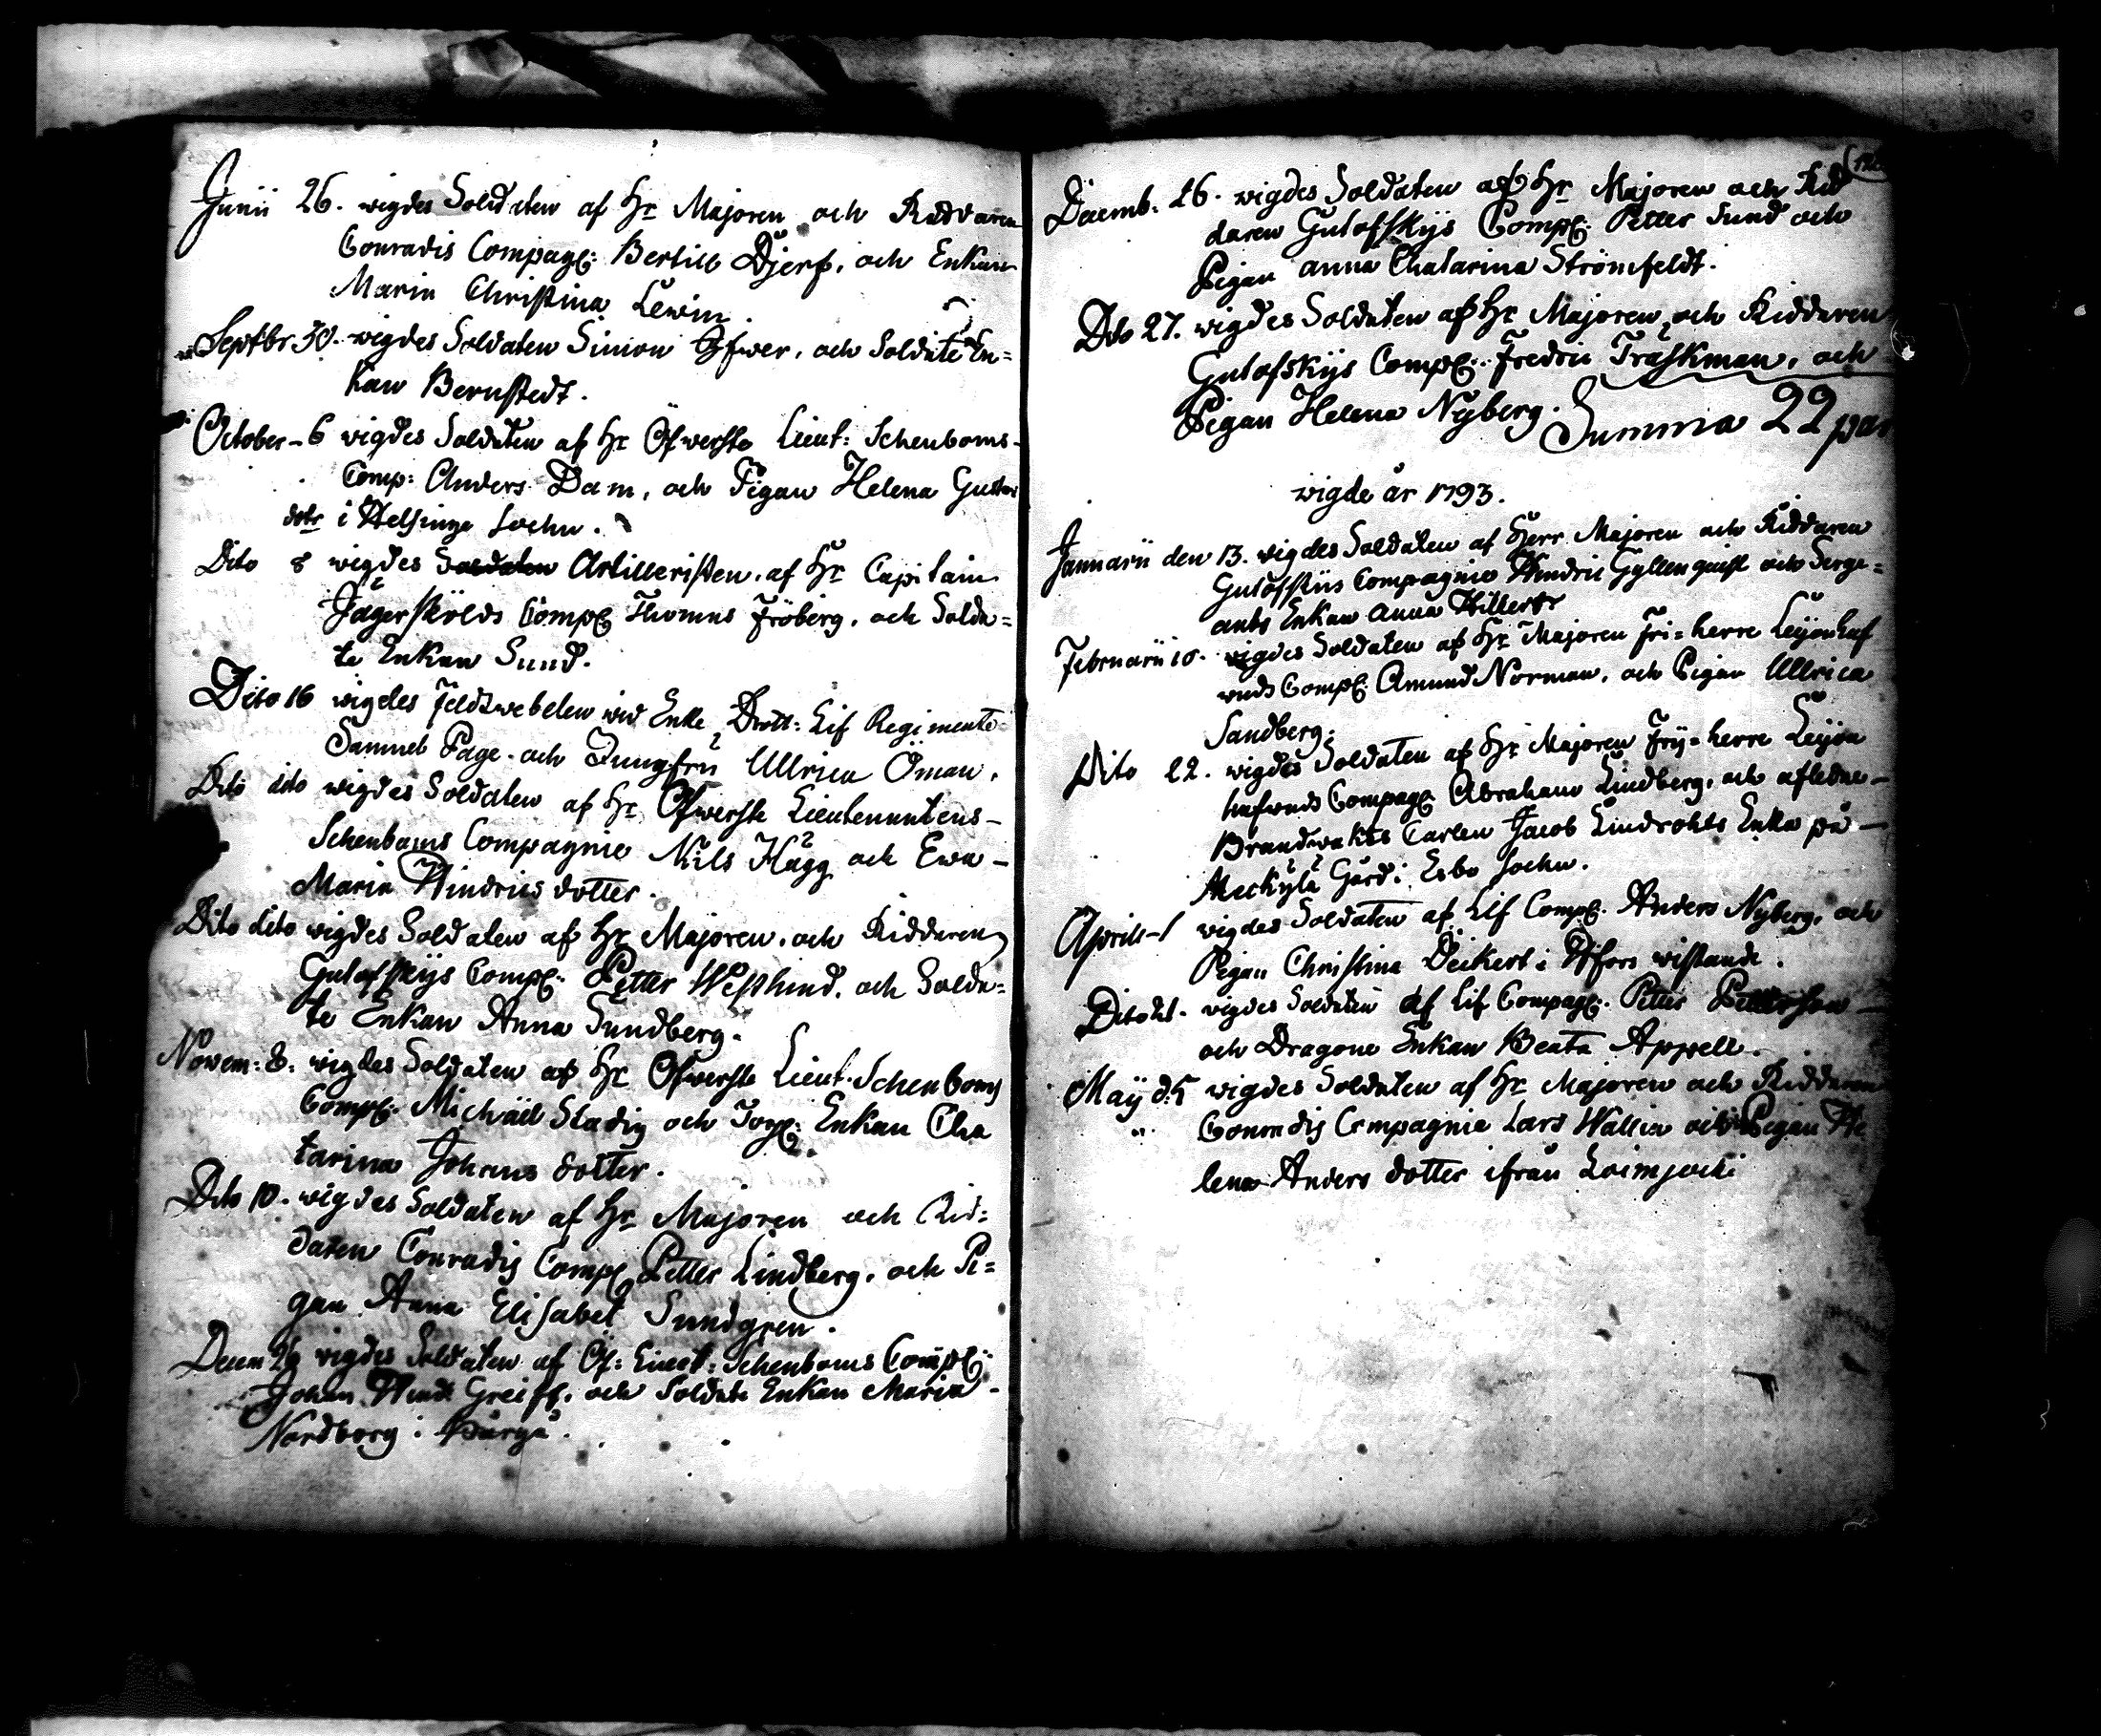 Junii 26. wigdes Soldaten af Hr Majoren och Riddaren
Conradis Compagn: Bertill Djerf, och Enkan
Maria Christina Lewin.
Septbr 30. wigdes Soldaten Simon Öfwer, och Soldate En=
kan Bernstedt.
October 6 wigdes Soldaten af Hr Öfwerste Lieut: Schenboms
Comp: Anders Dam, och Pigan Helena Gustavs
dotr i Helsinge Sochn.
Dito 8 wigdes Soldaten Artilleristen af Hr Capitain
Jägerskölds Comp: Thomas Fröberg, och Solda=
te Enkan Sund.
Dito 16 wigdes Feldtwebelen wid Enke Drott: Lif Regimente
Samuel Page och Jungfru Ullrica Öman.
Dito dito wigdes Soldaten af Hr Öfwerste Lieutenantens
Schenboms Compagnie Nils Hägg och Ewa
Maria Hindrics dotter.
Dito dito wigdes Soldaten af Hr Majoren och Riddaren
Gutofskijs Comp: Petter Westlund, och Solda=
te Enkan Anna Sundberg.
Novem: 8. wigdes Soldaten af Hr Öfwerste Lieut. Schenboms
Comp: Michäel Stadig och Enkan Cha
tarina Johans dotter.
Dito 10. wigdes Soldaten af Hr Majoren och Rid=
daren Conradis Comp: Petter Lindberg, och Pi=
gan Anna Elisabet Sundgren.
Decem 26 wigdes Soldaten af Öf: Lieut: Schenboms Comp:
Johan Hind: Greiff, och Soldate Enkan Maria
Nordborg i Borgå.
Decemb: 26. wigdes Soldaten af Hr Majoren och Rid
daren Gutofskijs Comp: Petter Sund och
Pigan Anna Chatarina Strömfeldt.
Dito 27. wigdes Soldaten af Hr Majoren och Riddaren
Gutofskijs Comp: Fredric Träskman, och
Pigan Helena Nyberg. Summa 22 par
wigde år 1793.
Januarii den 13. wigdes Soldaten af Herr Majoren och Riddaren
Gutofskijs Compagnie Hindric Gyllenquist och Serge=
ants Enkan Anna Hillert
Februarii 10. wigdes Soldaten af Hr Majoren Fri=herre Leijonhuf
wuds Comp: Amund Norman, och Pigan Ullrica
Sandberg.
Dito 22. wigdes Soldaten af Hr Majoren Frij=herre Leijon
hufwuds Compag: Abraham Lindberg, och afledne
Brandwakts Carlen Jacob Lindrohts Enka på
Meckylä Gård i Esbo Sochn.
Aprill 1 wigdes Soldaten af Lif Comp: Anders Nyberg, och
Pigan Christina Deikert i Hfors wistande.
Dito wigdes Soldaten af Lif Compag: Petter Petterson
och Dragone Enkan Beata Appell.
Maij d: 5 wigdes Soldaten af Hr Majoren och Riddaren
Conradis Compagnie Lars Wallin och Pigan He
lena Anders dotter ifrån Loimjocki